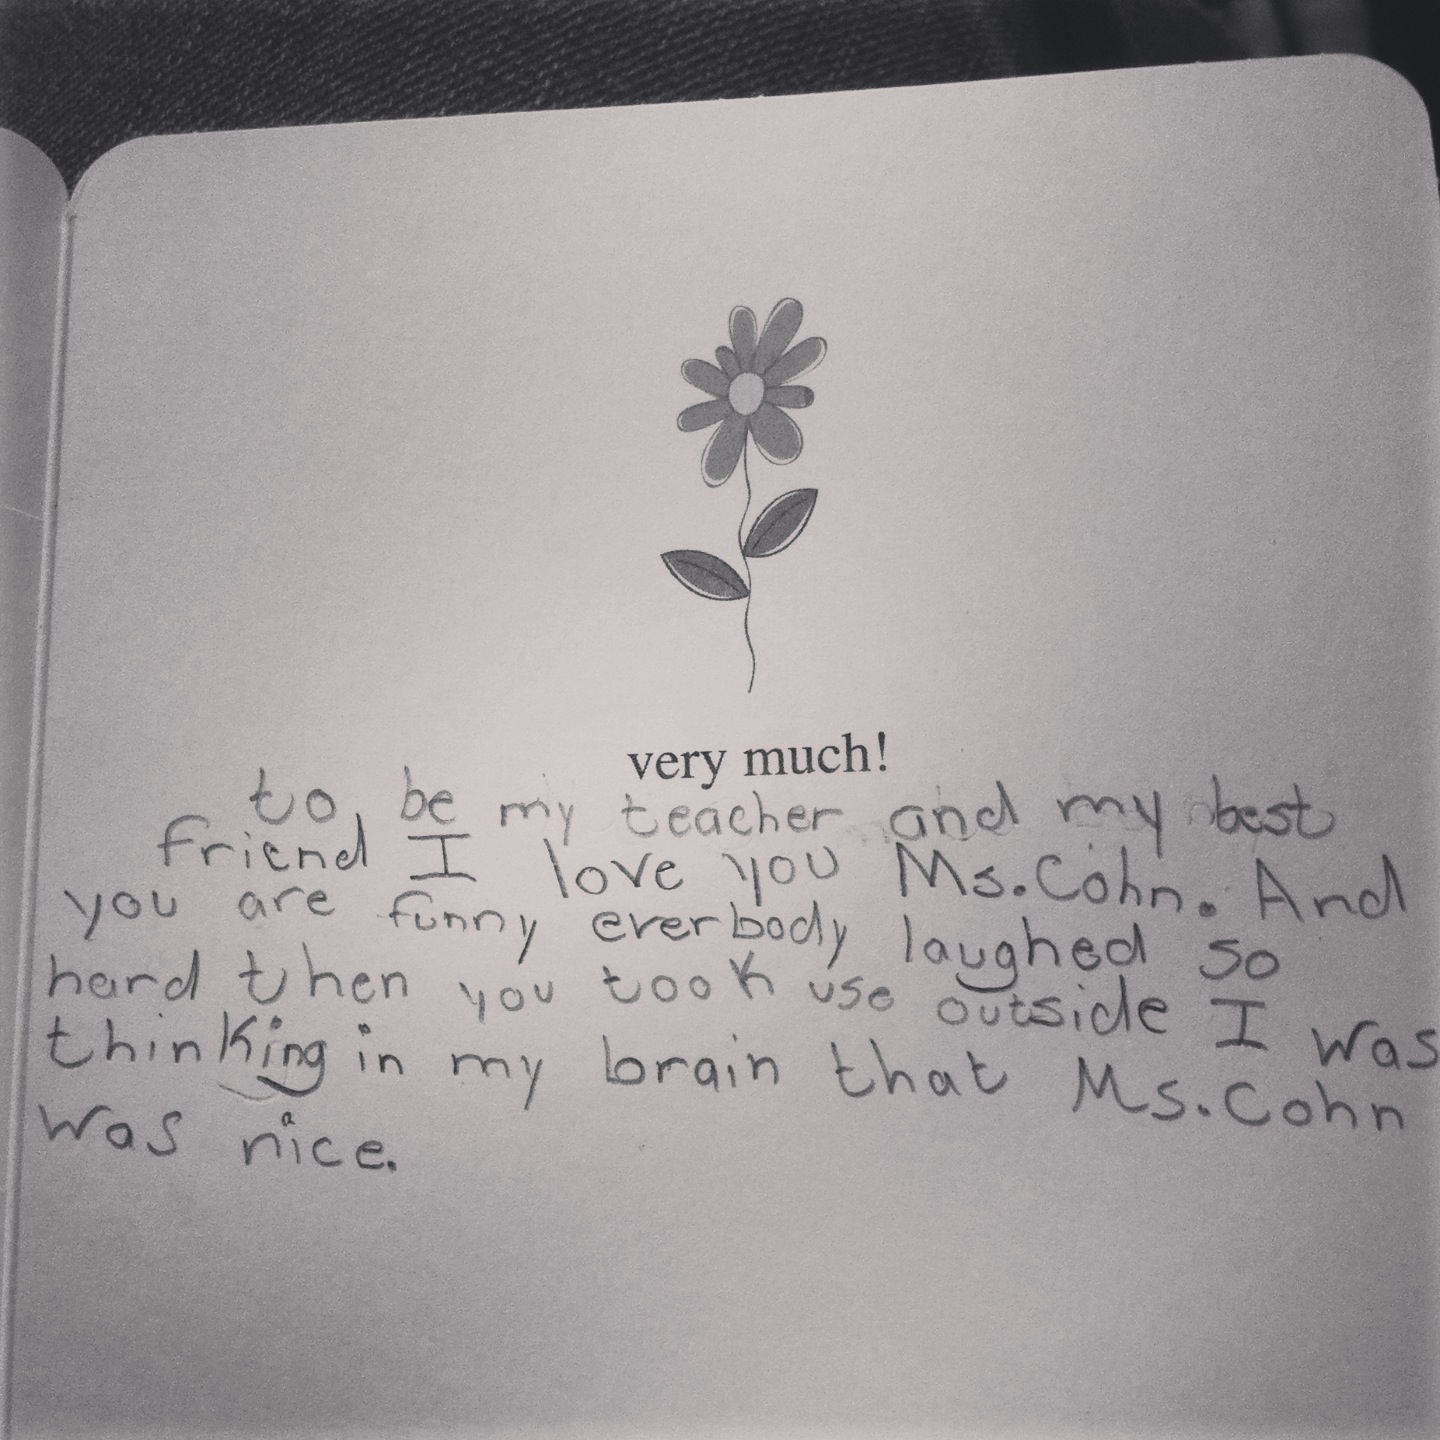 very much!
to be my teacher and my best
friend I love you Ms.Cohn. And
you are funny everbody laughed so
hard then you took use outside I was
thinking in my brain that Ms.Cohn
was nice.